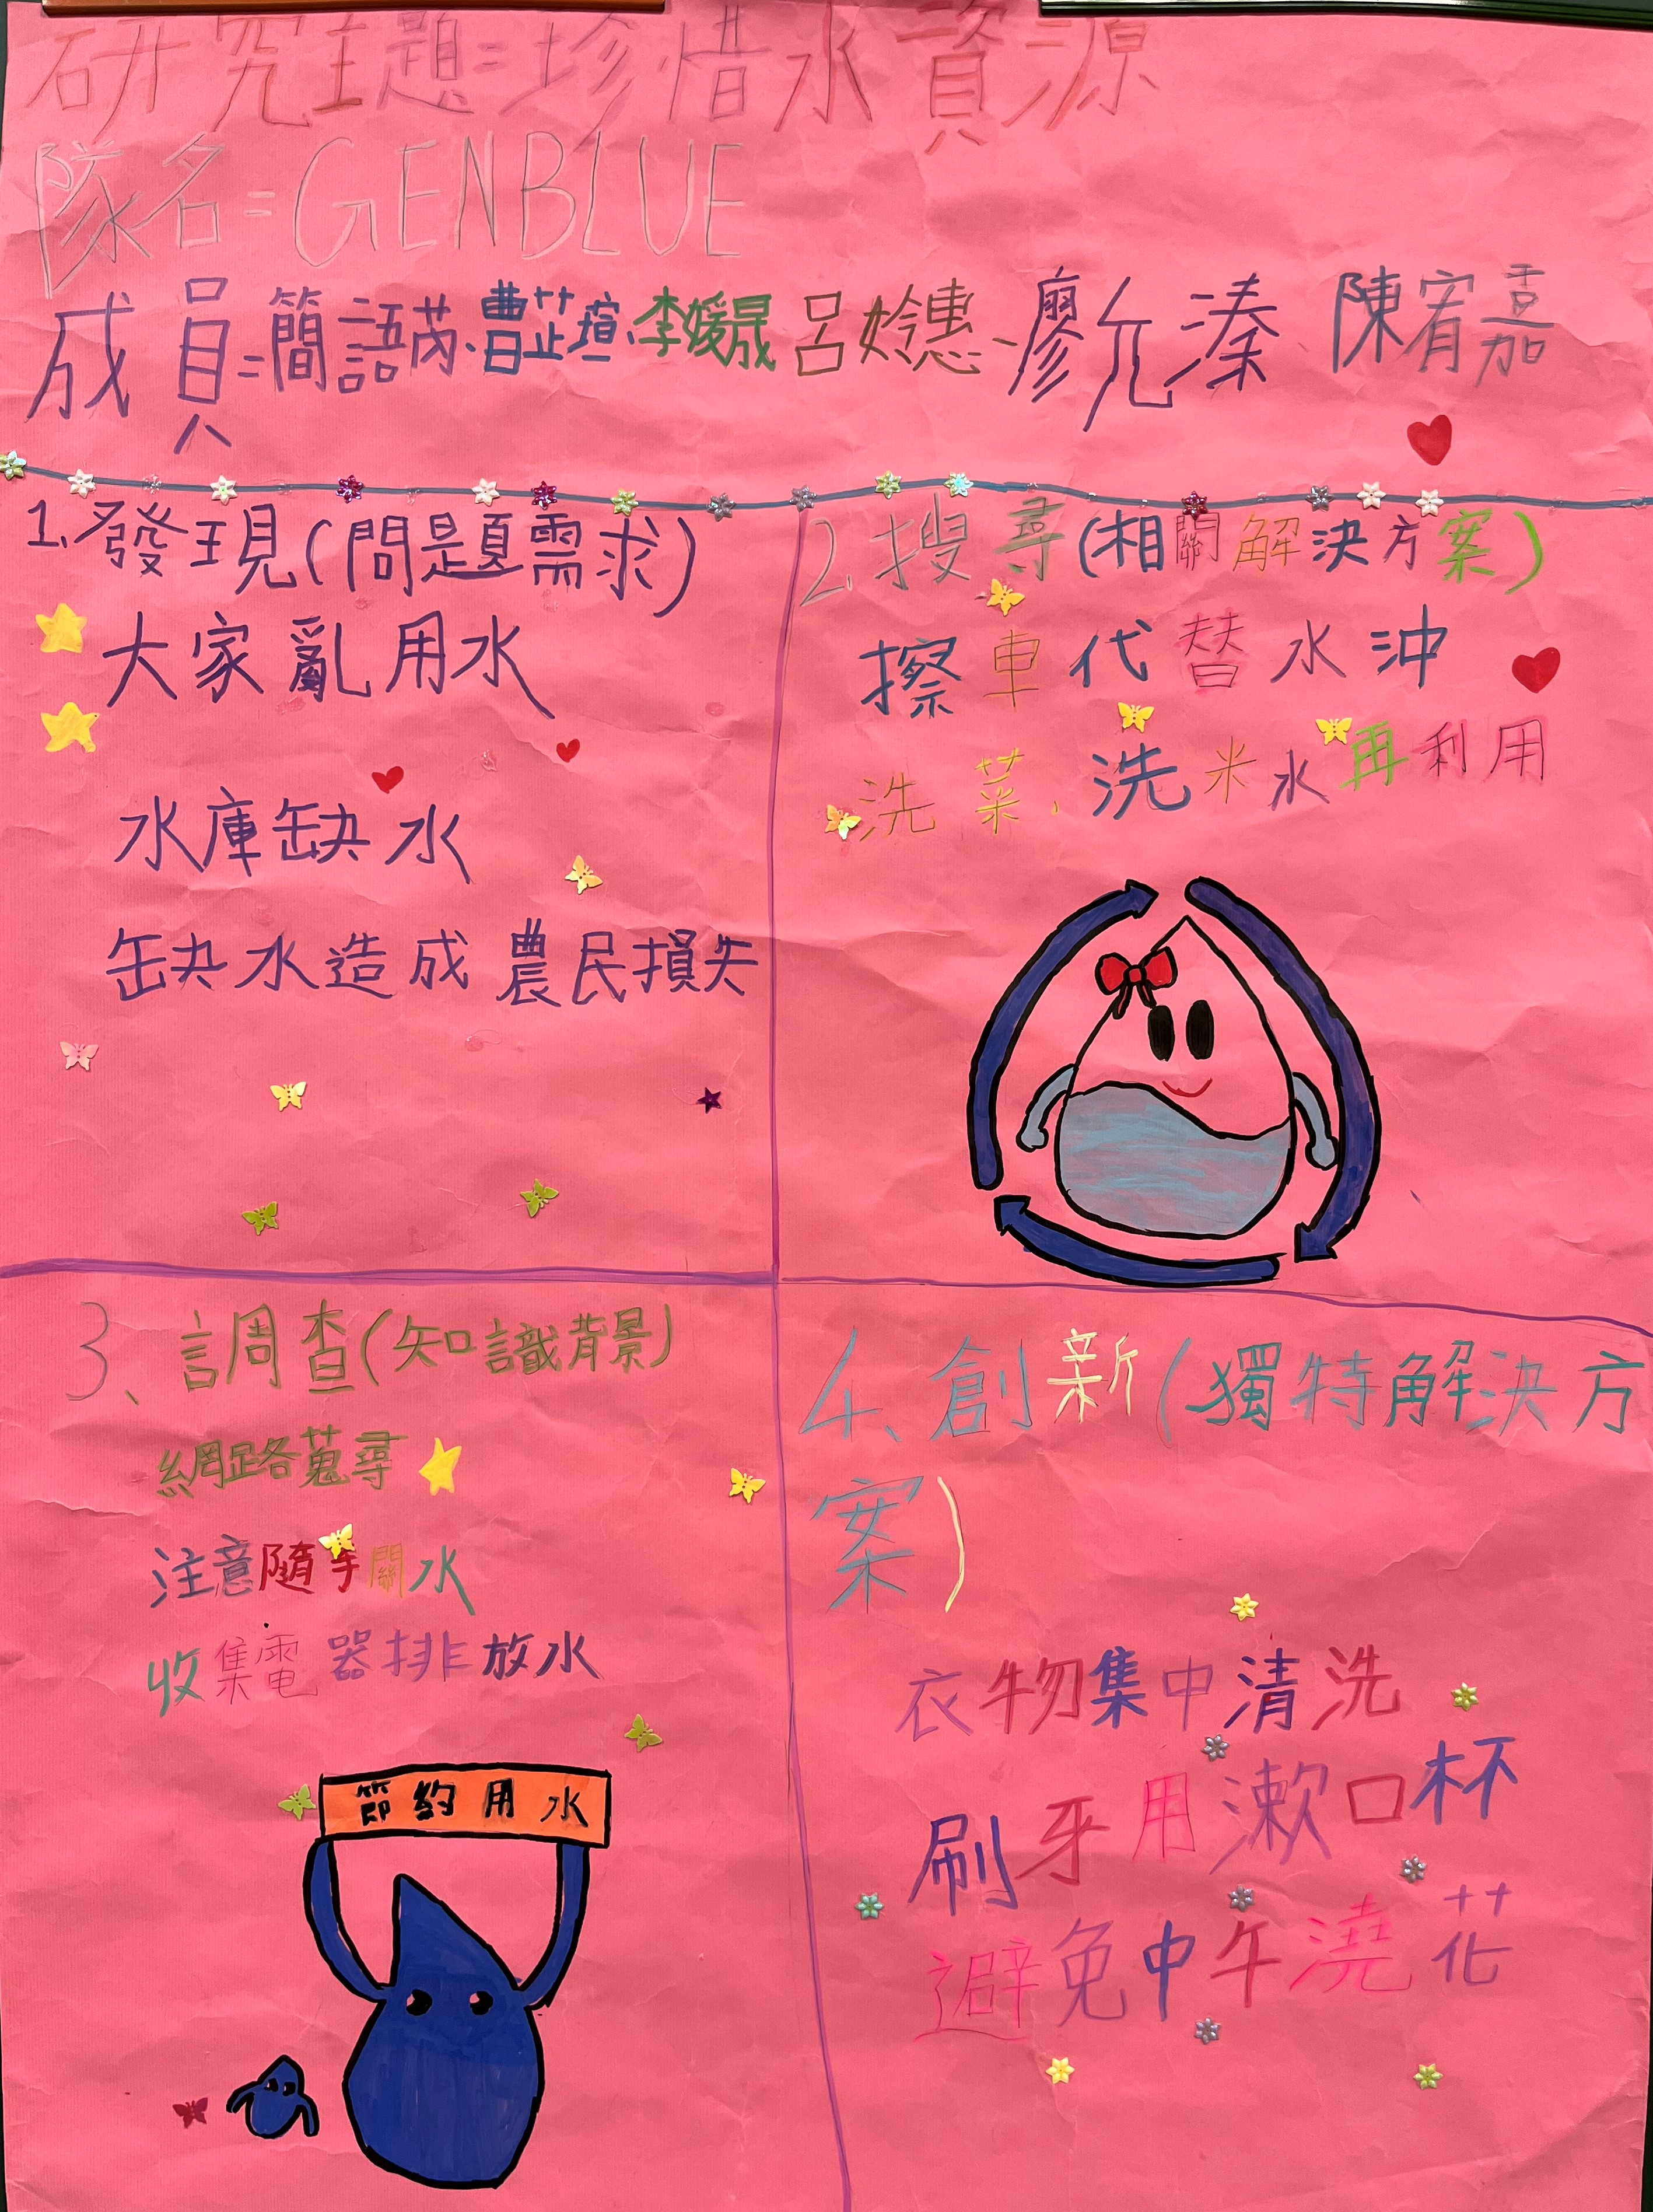 研究主題=珍惜水資源
隊名=GENBLUE
成員=簡語芮、曹芷瑄、李媛晟 呂姈憓、廖允溱 陳宥嘉
1.發現(問題需求)
大家亂用水
水庫缺水
缺水造成農民損失
2.搜尋(相關解決方案)
擦車代替水沖
洗菜、洗米水再利用
3、調查(知識背景)
網路蒐尋
注意隨手關水
收集電器排放水
節約用水
4、創新(獨特解決方
案)
衣物集中清洗
刷牙用漱口杯
避免中午澆花